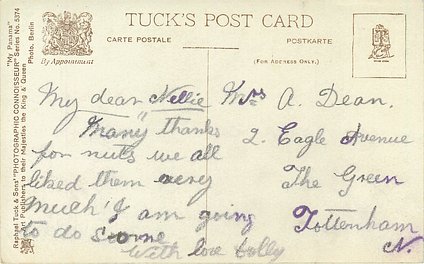 TUCK'S POST CARD
CARTE POSTALE
POSTKARTE
By Appointment
(FOR ADDRESS ONLY.)
"My Panama" Photo. Berlin
Raphael Tuck & Sons' "PHOTOGRAPHIC CONNOISSEUR" Series No. 5374
Art Publishers to their Majesties the King & Queen
My dear Nellie
"Many thanks
for nuts we all
liked them very
much! I am going
to do some
With love
Mrs A. Dean.
2. Eagle Avenue
The Green
Tottenham
N.